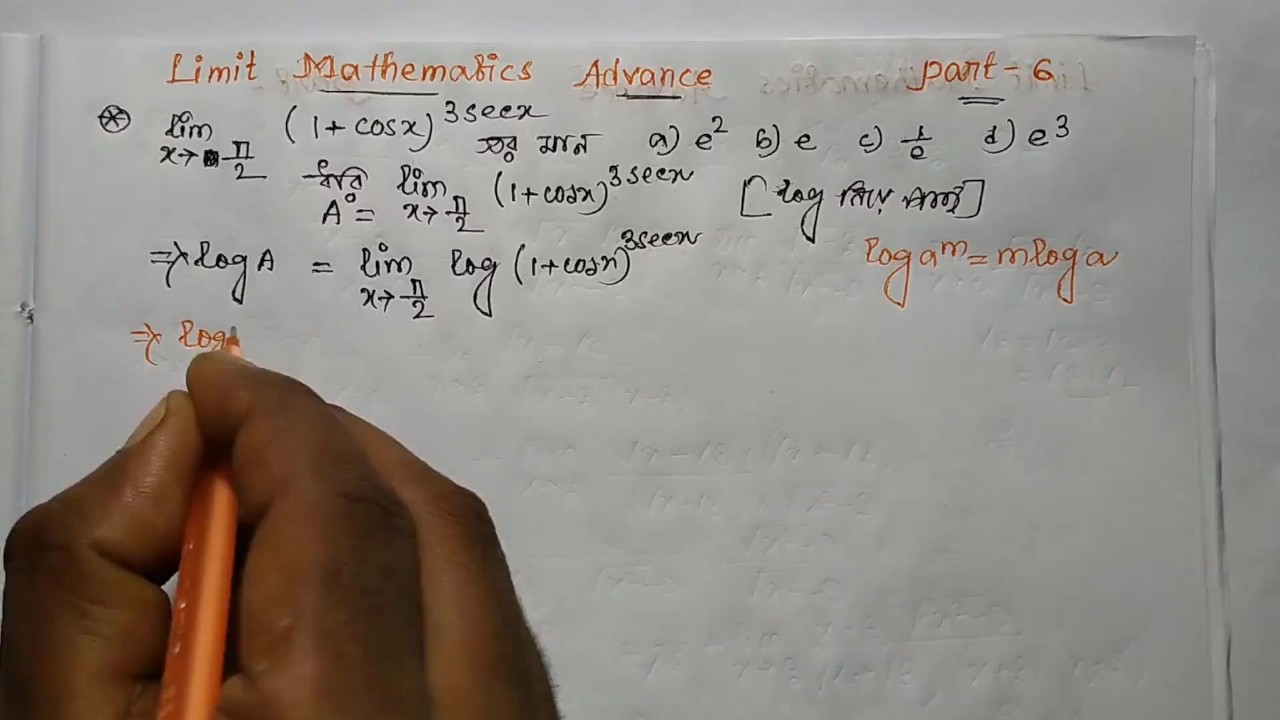 Limit Mathematics Advance part-6
⊛ lim x→π/2 (1+cosx)^3secx এর মান a) e² b) e c) 1/e d) e³
ধরি A = lim x→π/2 (1+cosx)^3secx [log নিয়ে পাই]
⇒ log A = lim x→π/2 log (1+cosx)^3secx log a^m = m log a
⇒ log